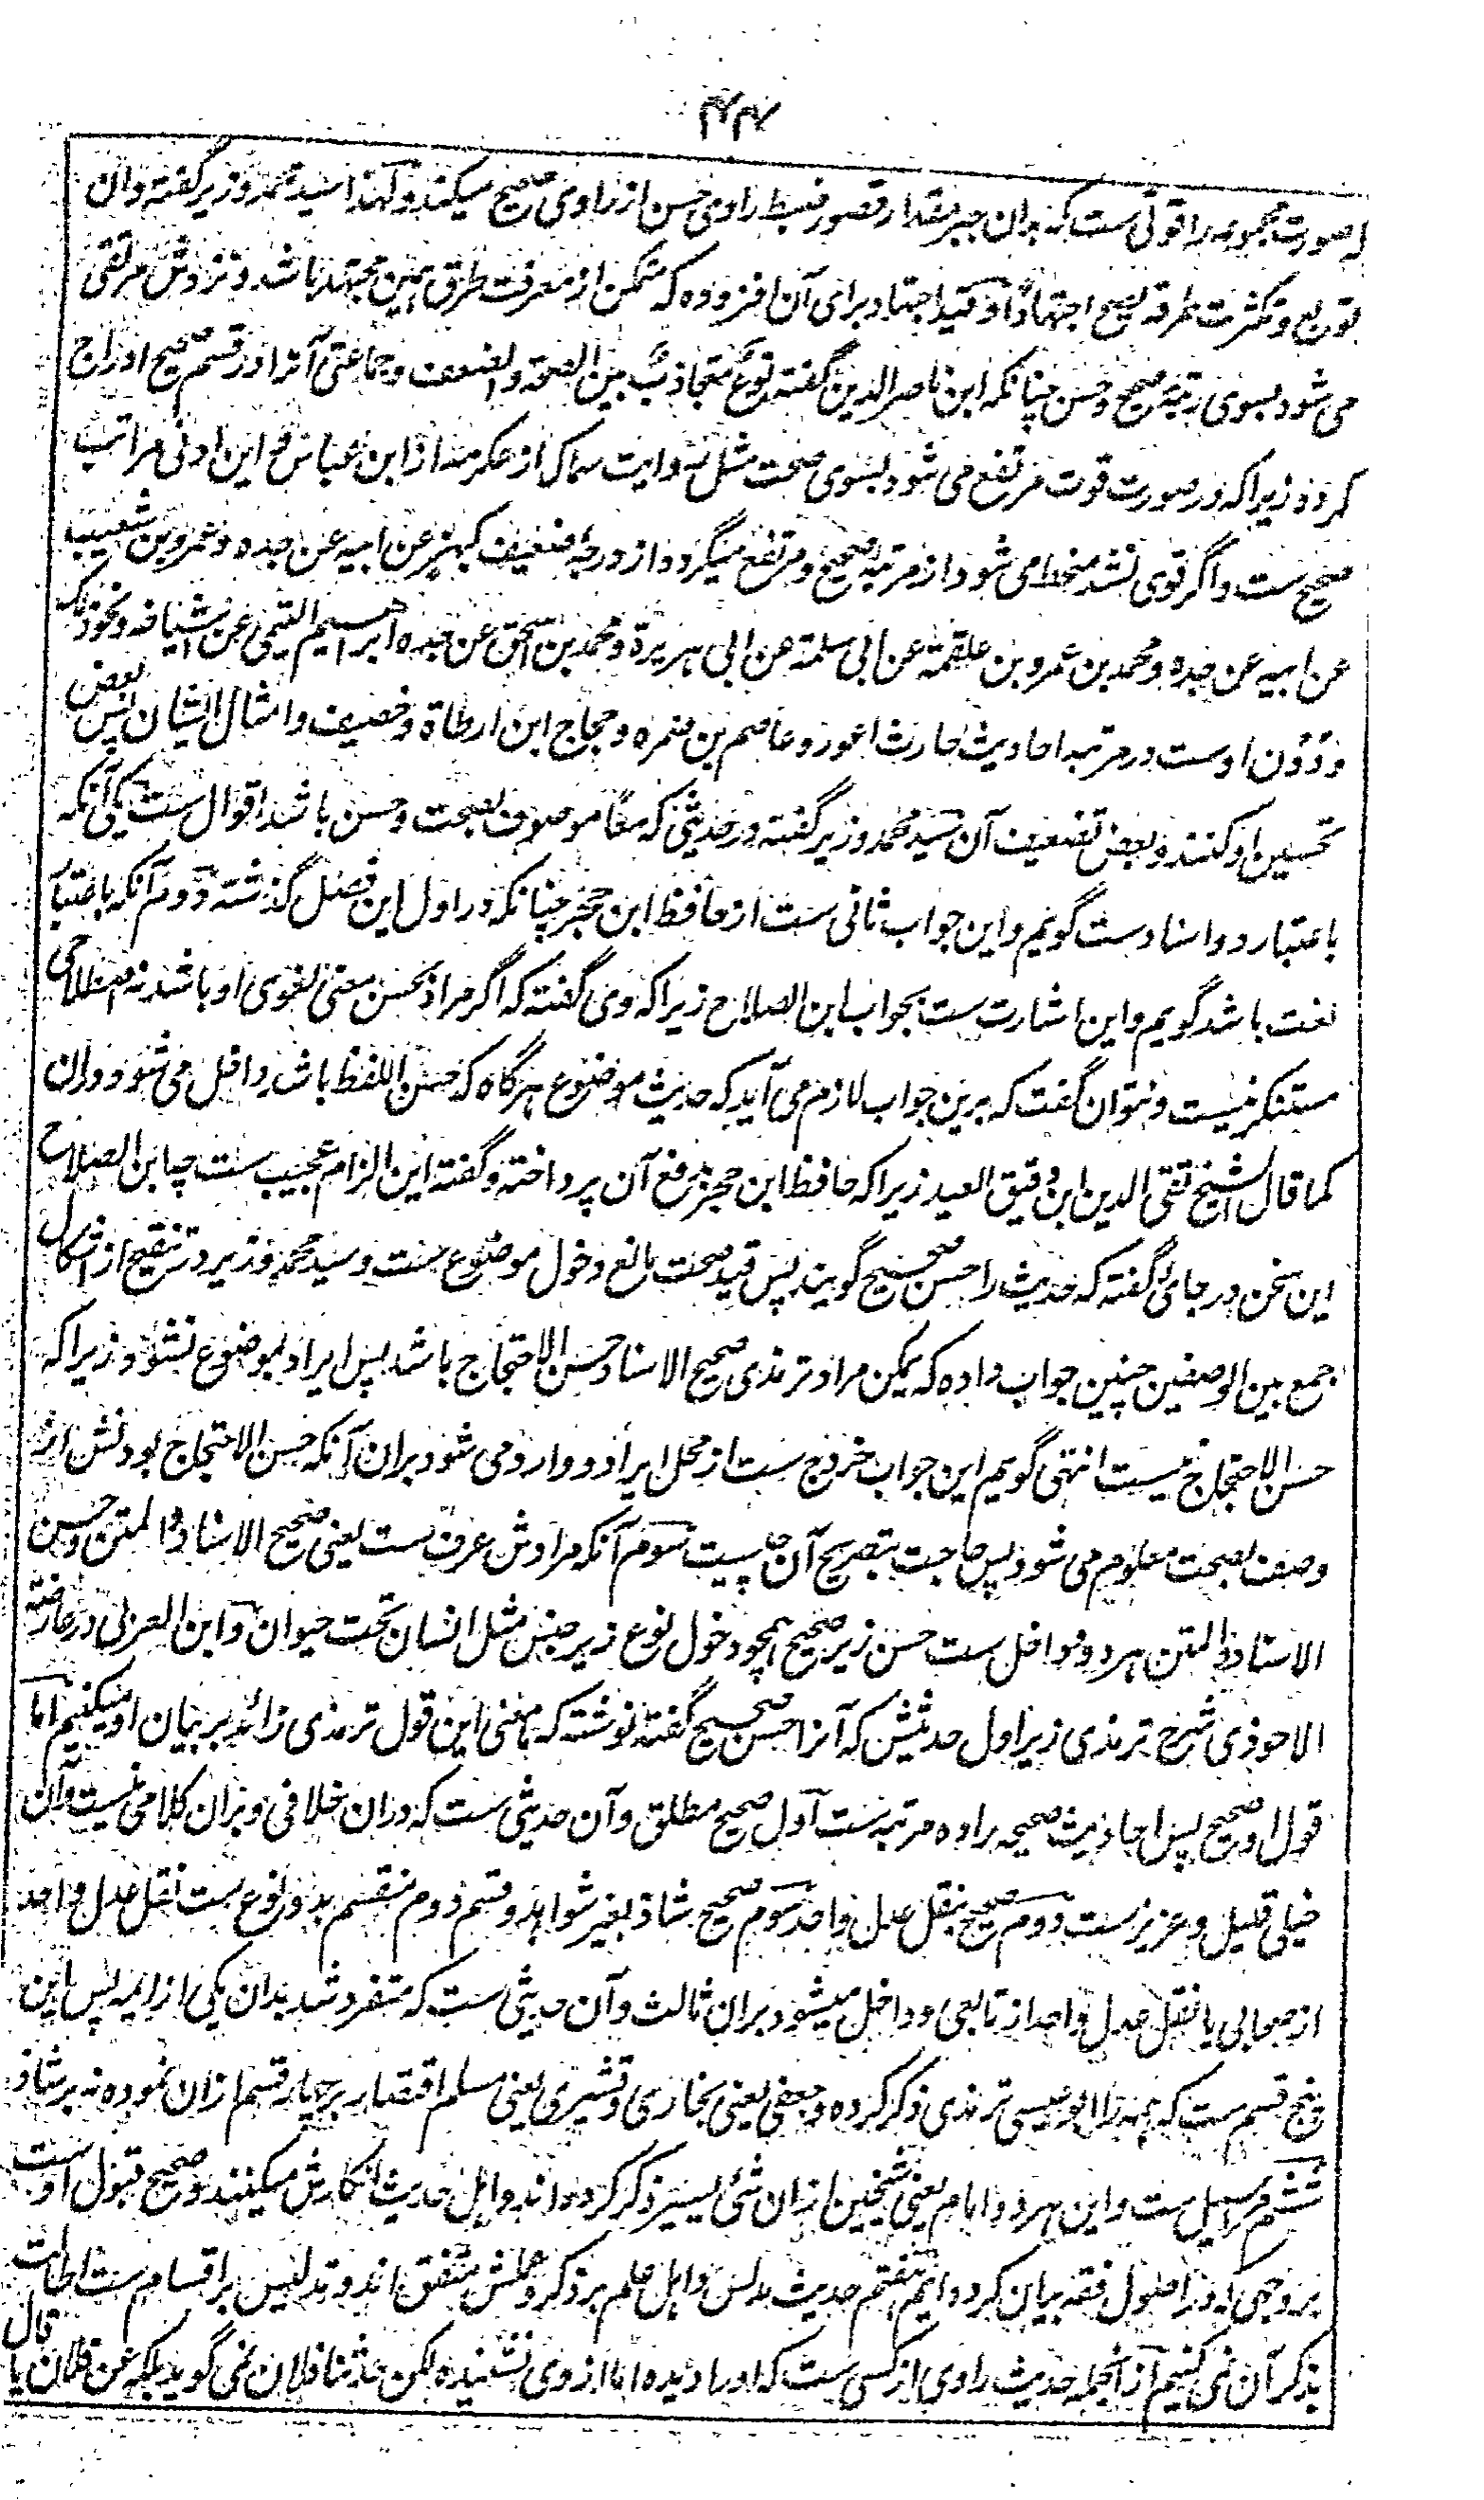 ۴۲۴
له صورت مجموعه را قوتی ست که بدان جبر مقدار قصور ضبط راوی حسن از راوی صحیح میکند و لهذا سید محمد وزیر گفته وان
تورع و کثرت طرقه فصح اجتهادا و تقیید اجتهاد برای آن افزوده که متمکن از معرفت طرق همین مجتهد باشد و نزدش مرتقی
می شود بسوی رتبهٔ صحیح و حسن چنانکه ابن ناصر الدین گفته نوع متجاذب بین الصحة والضعف و جماعتی آنرا در قسم صحیح ادراج
کرده زیرا که در صورت قوت مرتفع می شود بسوی صحت مثل روایت سماک از عکرمه از ابن عباس و این ادنی مراتب
صحیح ست و اگر قوی نشد منحط می شود از مرتبه صحیح و مرتفع میگردد از درجهٔ ضعیف کبهز عن ابیه عن جده و عمرو بن شعیب
عن ابیه عن جده و محمد بن عمرو بن علقمة عن ابی سلمة عن ابی هریرة و محمد بن اسحق عن جده ابراهیم التیمی عن اشیاخه و نحو ذلک
و دون اوست در مرتبه احادیث حارث اعور و عاصم بن ضمره و حجاج ابن ارطاة و خصیف و امثال ایشان پس بعض
تحسین او کنند و بعض تضعیف آن سید محمد وزیر گفته در حدیثی که معا موصوف بصحت و حسن باشد اقوال ست یکی آنکه
باعتبار دو اسناد ست گویم و این جواب ثانی ست از حافظ ابن حجر چنانکه در اول این فصل گذشته دوم آنکه باعتبار
لغت باشد گویم و این اشارت ست بجواب ابن الصلاح زیرا که وی گفته که اگر مراد بحسن معنی لغوی او باشد نه اصطلاحی
مستنکر نیست و نتوان گفت که برین جواب لازم می آید که حدیث موضوع هرگاه که حسن اللفظ باشد داخل می شود دران
کما قال الشیخ تقی الدین ابن دقیق العید زیرا که حافظ ابن حجر بدفع آن پرداخته و گفته این الزام عجیب ست چه ابن الصلاح
این سخن در جای گفته که حدیث را حسن صحیح گویند پس قید صحت مانع دخول موضوع ست و سید محمد وزیر در تنقیح از اشکال
جمع بین الوصفین چنین جواب داده که یمکن مراد ترمذی صحیح الاسناد حسن الاحتجاج باشد پس ایراد بموضوع نشود زیرا که
حسن الاحتجاج نیست انتهی گویم این جواب خروج ست از محل ایراد و وارد می شود بران آنکه حسن الاحتجاج بودنش از
وصف بصحت معلوم می شود پس حاجت بتصریح آن چیست سوم آنکه مرادش عرف ست یعنی صحیح الاسناد والمتن و حسن
الاسناد والمتن هر دو و داخل ست حسن زیر صحیح همچو دخول نوع زیر جنس مثل انسان تحت حیوان و ابن العربی در عارضة
الاحوذی شرح ترمذی زیر اول حدیثش که آنرا حسن صحیح گفته نوشته که ما معنی این قول ترمذی زائد بر بیان او میکنیم اما
قول او صحیح پس احادیث صحیحه را ده مرتبه ست اول صحیح مطلق و آن حدیثی ست که دران خلافی و بران کلامی نیست و آن
خیلی قلیل و عزیز ست دوم صحیح بنقل عدل واحد سوم صحیح شاذ بغیر شواهد و قسم دوم منقسم بدو نوع ست نقل عدل واحد
از صحابی یا نقل عدل واحد از تابعی و داخل میشود بران ثالث و آن حدیثی ست که متفرد شد بدان یکی از ایمه پس این
پنج قسم ست که همه را ابو عیسی ترمذی ذکر کرده و جعفی یعنی بخاری و قشیری یعنی مسلم اقتصار بر چهار قسم ازان نموده نه بر شاذ
ششم مراسیل ست و این هر دو امام یعنی شیخین ازان شئ یسیر ذکر کرده اند و اهل حدیث انکارش میکنند و صحیح قبول اوست
بروجهی که در اصول فقه بیان کرده ایم هفتم حدیث مدلس و اهل علم بر ذکر و عملش متفق اند و تدلیس بر اقسام ست اطالت
بذکر آن نمی کنیم ازانجمله حدیث راوی از کسی ست که او را دیده اما از وی نشنیده لکن حدثنا فلان نمی گوید بلکه عن فلان یا قال